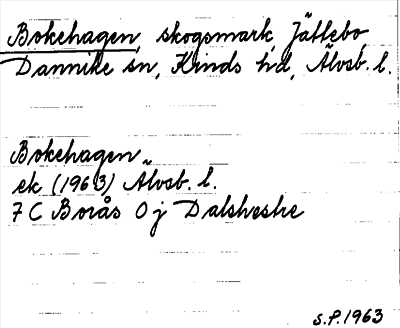 Bokehagen, skogsmark, Jällebo
Dannike sn, Kinds hd, Älvsb. l.
Bokehagen
ek (1963) Älvsb. l.
7 C Borås 0 j Dalshestre
S.P. 1963